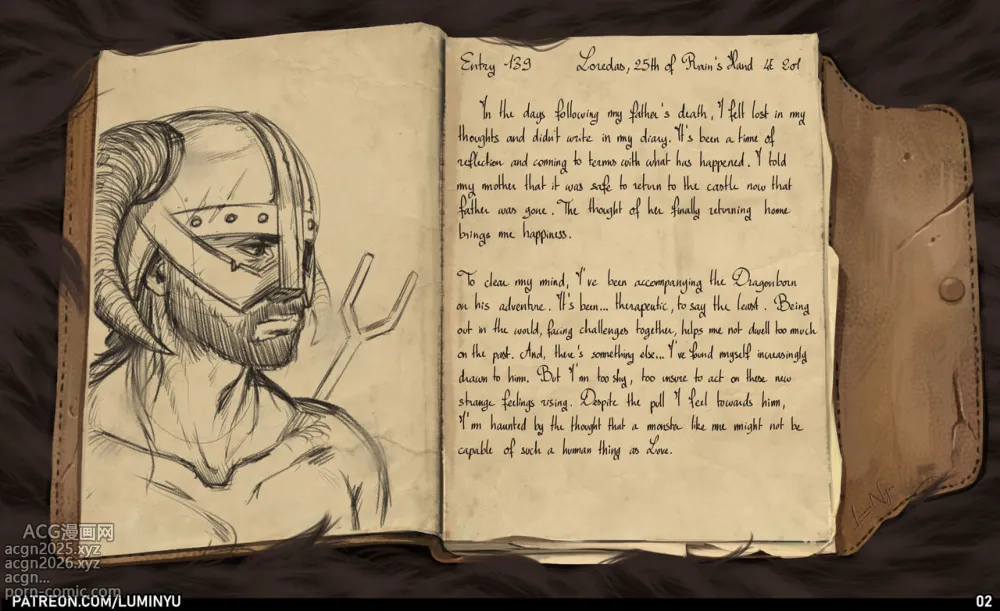 Entry 139 Loredas, 25th of Rain's Hand 4E 201
In the days following my father's death, I felt lost in my
thoughts and didn't write in my diary. It's been a time of
reflection and coming to terms with what has happened. I told
my mother that it was safe to return to the castle now that
father was gone. The thought of her finally returning home
brings me happiness.
To clear my mind, I've been accompanying the Dragonborn
on his adventure. It's been... therapeutic, to say the least. Being
out in the world, facing challenges together, helps me not dwell too much
on the past. And, there's something else... I've found myself increasingly
drawn to him. But I'm too shy, too unsure to act on these new
strange feelings rising. Despite the pull I feel towards him,
I'm haunted by the thought that a monster like me might not be
capable of such a human thing as Love.
ACG漫画网
acgn2025.xyz
acgn2026.xyz
acgn...
porn-comic.com
PATREON.COM/LUMINYU
02